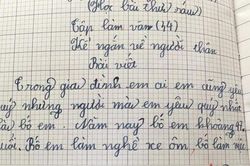 (Học bài thứ sáu)
Tập làm văn (44)
Kể ngắn về người thân
Bài viết
Trong gia đình em ai em cũng yêu
quý nhưng người mà em yêu quý nhất
bố em. Năm nay bố em khoảng 42
tuổi. Bố em làm nghề xe ôm, bố làm